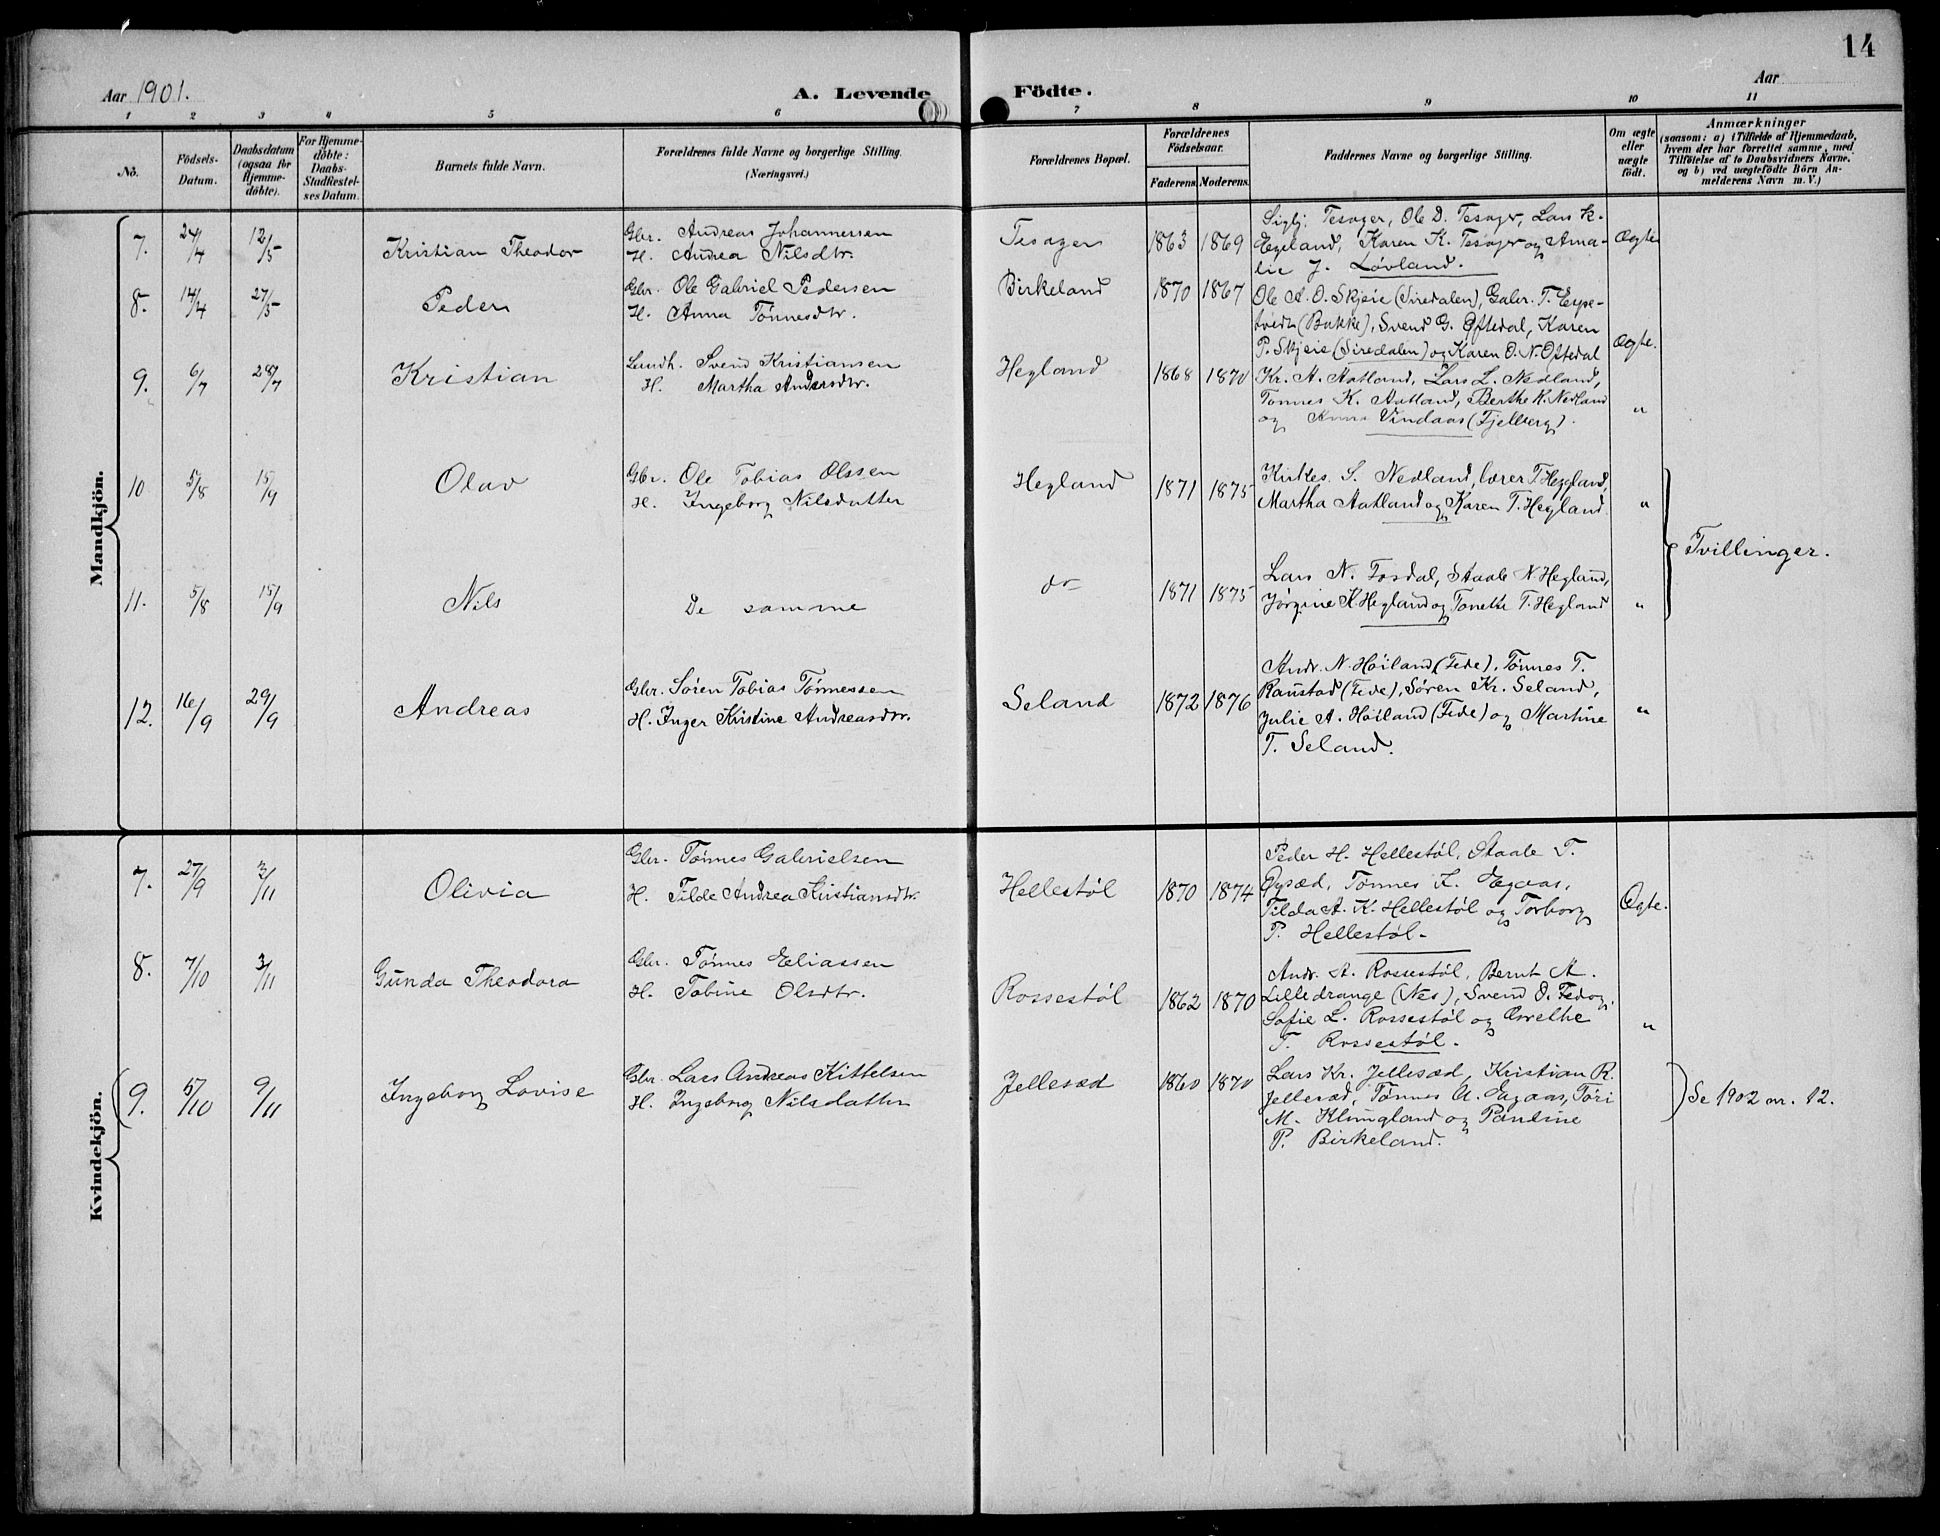 14
Aar 1901.
A. Levende
Födte.
Aar
1 2 3 4 5 6 7 8 9 10 11
No.
Födsels-
Datum.
Daabsdatum
(ogsaa for
Hjemme-
döbte).
For Hjemme-
döbte:
Daabs-
Stadfæstel-
ses Datum.
Barnets fulde Navn.
Forældrenes fulde Navne og borgerlige Stilling.
(Næringsvei.)
Forældrenes Bopæl.
Forældrenes
Födselsaar.
Faderens. Moderens.
Faddernes Navne og borgerlige Stilling.
Om ægte
eller
uægte
födt.
Anmærkninger
(saasom: a) i Tilfælde af Hjemmedaab,
hvem der har forrettet samme, med
Tilföielse af to Daabsvidners Navne.
og b) ved uægtefödte Börn An-
melderens Navn m. V.)
Mandkjön.
7. 24/4 12/5 Kristian Theodor
Gbr. Andreas Johannessen
H. Andrea Nilsdtr.
Tesager 1863 1869
Sigbj. Tesager, Ole D. Tesager, Lars K.
Egeland, Karen K. Tesager og Ama-
lie J. Løvland.
Ægte
8. 14/4 27/5 Peder
Gbr. Ole Gabriel Pedersen
H. Anna Tönnesdtr.
Birkeland 1870 1867
Ole A. O. Skjeie (Siredalen), Gabr. T. Erpe-
tvedt (Bakke), Svend G. Oftedal, Karen
P. Skjeie (Siredalen) og Karen O. N. Oftedal
Ægte.
9. 6/7 28/7 Kristian
Landh. Svend Kristiansen
H. Martha Andersdtr.
Hegland 1868 1870
Kr. A. Aatland, Lars L. Nedland,
Tønnes K. Aatland, Berthe K. Nedland
og Anna Vindaas (Fjelberg).
"
10 5/8 15/9 Olav
Gbr. Ole Tobias Olssen
H. Ingeborg Nilsdatter
Hegland 1871 1875
S. Nedland, lærer T. Hegland,
Martha Aatland og Karen T. Hegland.
"
Tvillinger.
11. 5/8 15/9 Nils
De samme
do 1871 1875
Lars N. Fosdal, Staale N. Hegland,
Jørgine K. Hegland og Tonette T. Hegland
"
12. 16/9 29/9 Andreas
Gbr. Søren Tobias Tønnessen
H. Inger Kristine Andreasdtr.
Seland 1872 1876
Andr. N. Høiland (Fede), Tønnes T.
Raustad (Fede), Søren Kr. Seland,
Julie A. Høiland (Fede) og Martine
T. Seland.
"
Kvindekjön.
7. 27/9 3/11 Olivia
Gbr. Tønnes Gabrielsen
H. Tilde Andrea Kristiansdtr.
Hellestøl 1870 1874
Peder H. Hellestøl, Staale T.
Øysæd, Tønnes K. Egaas,
Tilda A. K. Hellestøl og Torborg
P. Hellestøl.
Ægte.
8. 7/10 3/11 Gunda Theodora
Gbr. Tønnes Eliassen
H. Tobine Olsdtr.
Rossestøl 1862 1870
Andr. A. Rossestøl, Bernt M.
Lilledrange (Næs), Svend O. Fedog,
Sofie L. Rossestøl og
T. Rossestøl.
"
9. 5/10 9/11 Ingeborg Lovise
Gbr. Lars Andreas Kittelsen
H. Ingeborg Nilsdatter
Jellesæd 1860 1870
Lars Kr. Jellesæd, Kristian R.
Jellesæd, Tønnes A. Egaas, Tori
M. Klungland og Pandine
P. Birkeland.
Se 1902 nr. 12.